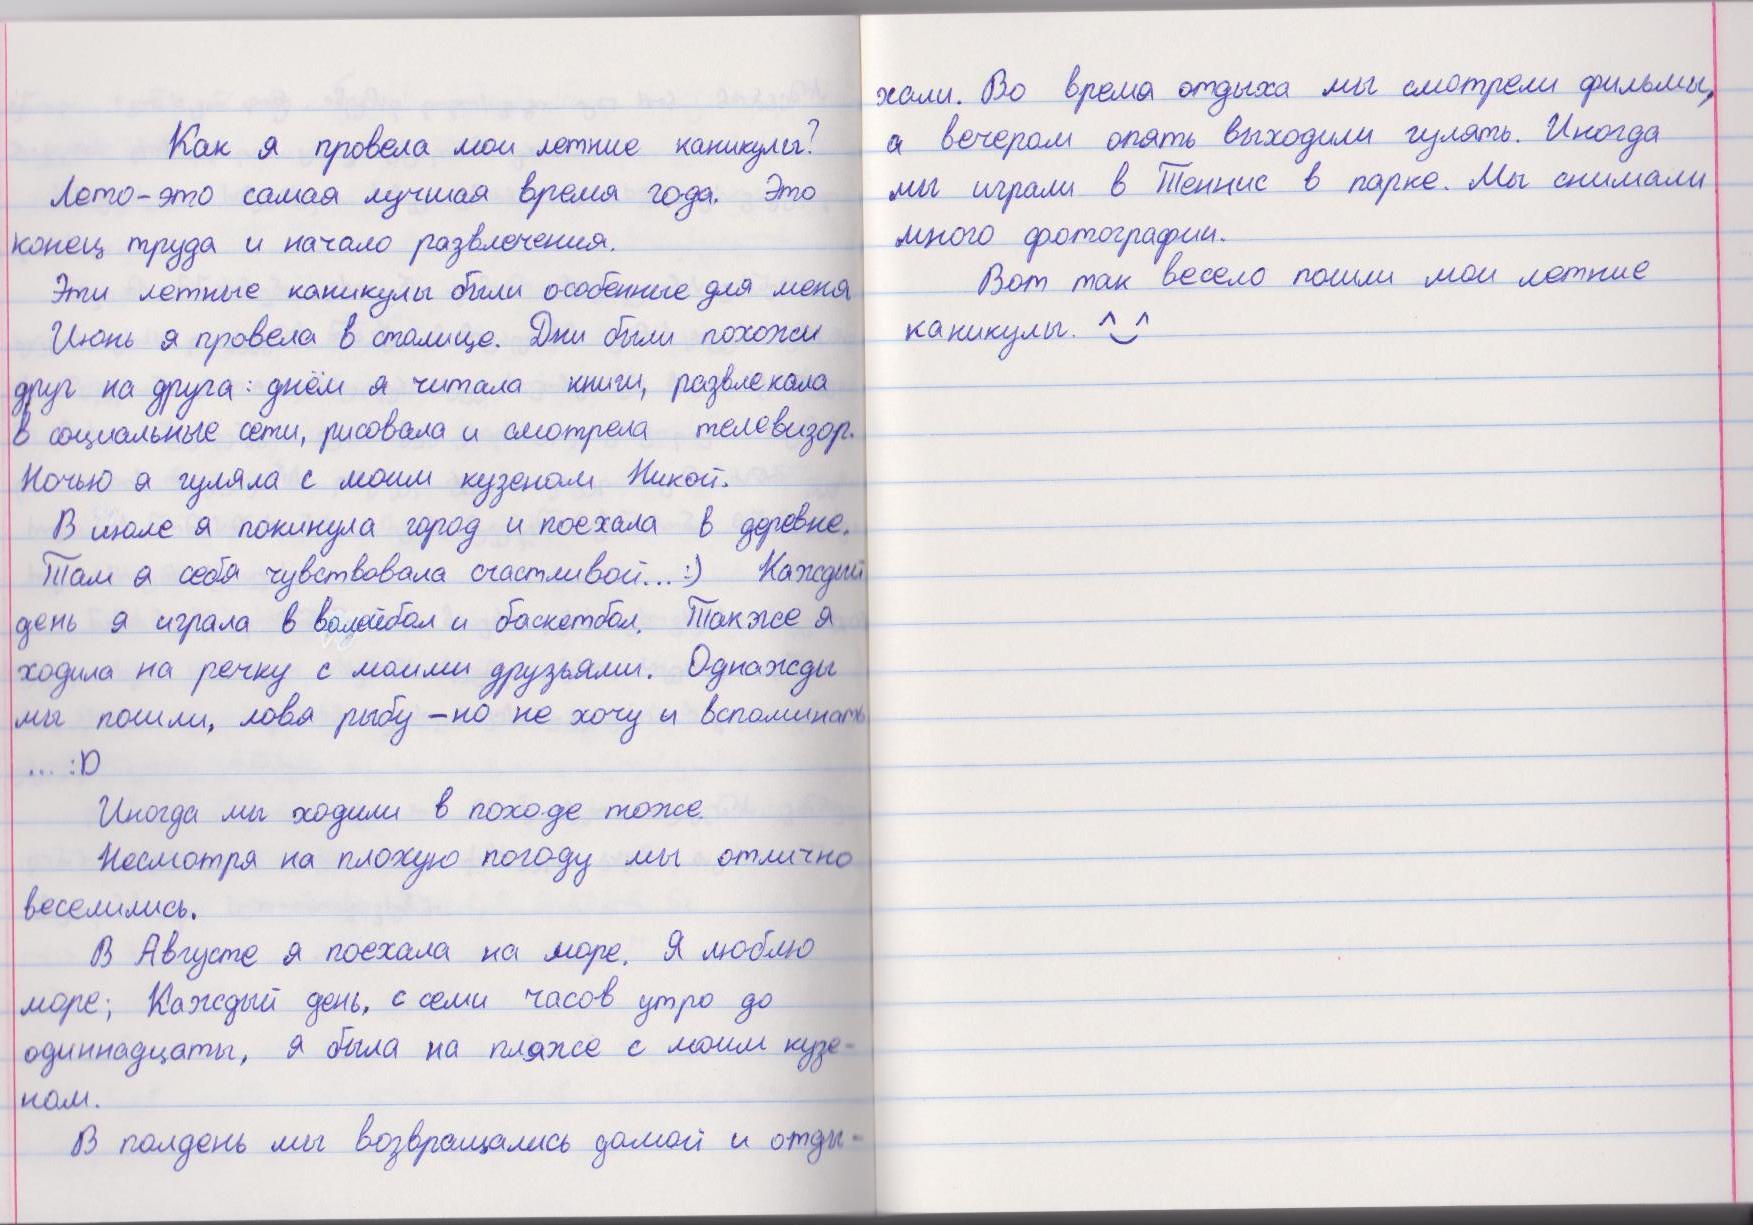 Как я провела мои летние каникулы?
Лето-это самая лучшая время года. Это
конец труда и начало развлечения.
Эти летные каникулы были особенные для меня
Июнь я провела в столице. Дни были похожи
друг на друга: днём я читала книги, развлекала
в социальные сети, рисовала и смотрела телевизор.
Ночью я гуляла с моим кузеном Никой.
В июле я покинула город и поехала в деревне.
Там я себя чувствовала счастливой... :) Каждый
день я играла в волейбол и баскетбол. Также я
ходила на речку с моими друзьями. Однажды
мы пошли, ловя рыбу – но не хочу и вспоминать
... :D
Иногда мы ходили в походе тоже.
Несмотря на плохую погоду мы отлично
веселились.
В Августе я поехала на море. Я люблю
море; Каждый день, с семи часов утро до
одиннадцаты, я была на пляже с моим кузе-
ном.
В полдень мы возвращались домой и отды-
хали. Во время отдыха мы смотрели фильмы,
а вечером опять выходили гулять. Иногда
мы играли в Теннис в парке. Мы снимали
много фотографии.
Вот так весело пошли мои летние
каникулы. ^‿^